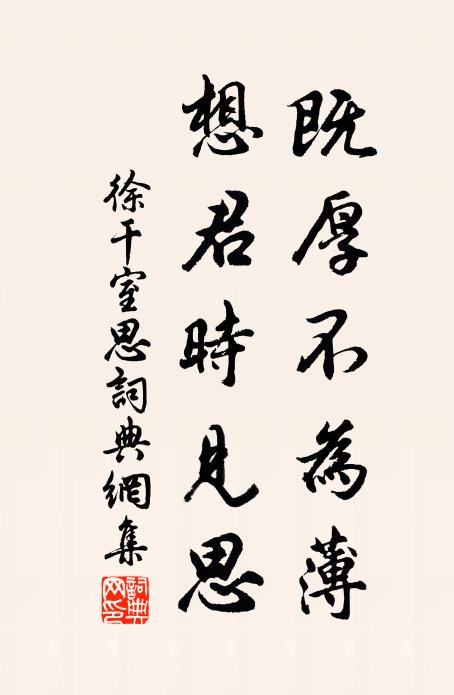 既厚不為薄
想君時見思
徐干室思詞典網集
詞典网印